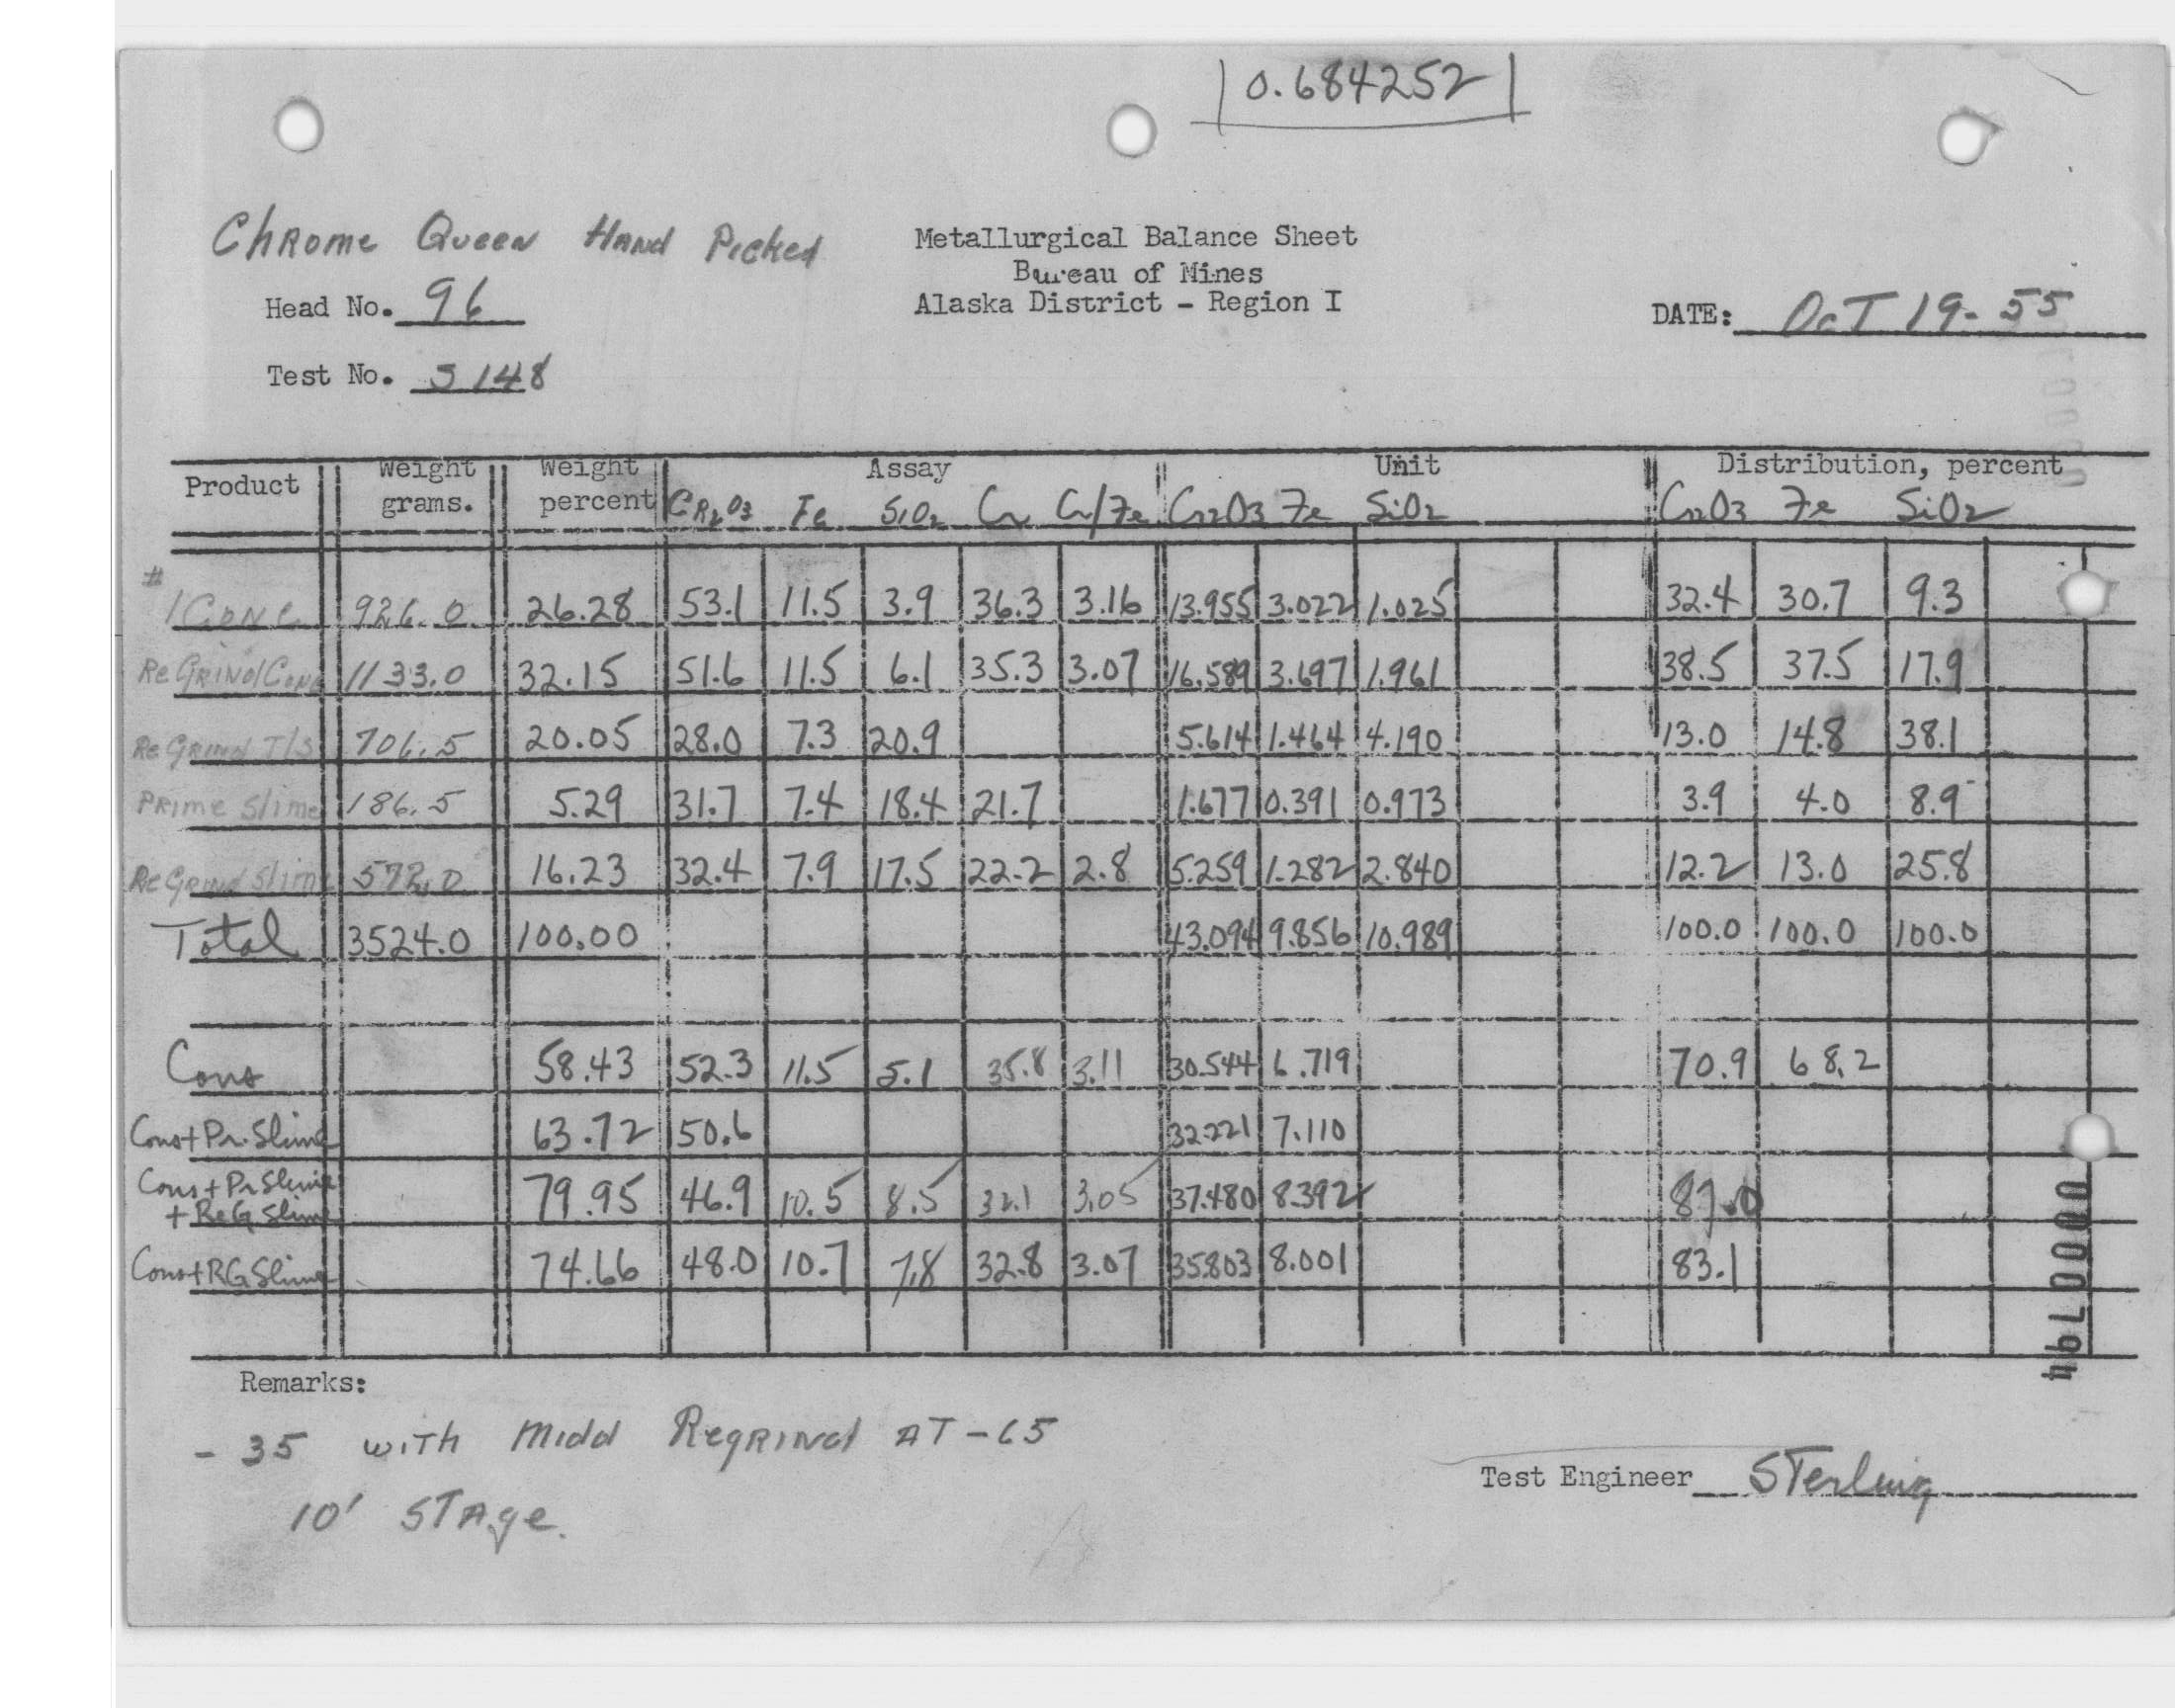 0.684252
Chrome Queen Hand Picked
Metallurgical Balance Sheet
Bureau of Mines
Alaska District - Region I
Head No. 96
DATE: Oct 19-55
Test No. S148
Product Weight grams. Weight percent Assay Unit Distribution, percent
Cr2O3 Fe SiO2 Cr Cr/Fe Cr2O3 Fe SiO2 Cr2O3 Fe SiO2
#1 Conc 926.0 26.28 53.1 11.5 3.9 36.3 3.16 13.955 3.022 1.025 32.4 30.7 9.3
ReGrind Conc 1133.0 32.15 51.6 11.5 6.1 35.3 3.07 16.589 3.697 1.961 38.5 37.5 17.9
ReGrind T/S 706.5 20.05 28.0 7.3 20.9 5.614 1.464 4.190 13.0 14.8 38.1
Prime Slime 186.5 5.29 31.7 7.4 18.4 21.7 1.677 0.391 0.973 3.9 4.0 8.9
ReGrind Slime 572.0 16.23 32.4 7.9 17.5 22.2 2.8 5.259 1.282 2.840 12.2 13.0 25.8
Total 3524.0 100.00 43.094 9.856 10.989 100.0 100.0 100.0
Cons 58.43 52.3 11.5 5.1 35.8 3.11 30.544 6.719 70.9 68.2
Cons+Pr. Slime 63.72 50.6 32.221 7.110
Cons + Pr Slime
+ ReG Slime 79.95 46.9 10.5 8.5 32.1 3.05 37.480 8.392 87.0
Cons+RG Slime 74.66 48.0 10.7 7.8 32.8 3.07 35.803 8.001 83.1
0000794
Remarks:
- 35 with Midd Regrind AT -65
10' Stage.
Test Engineer Sterling